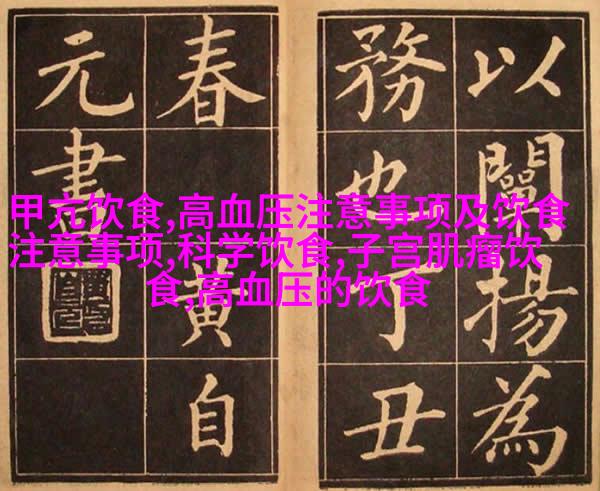 以闡揚為
務也丁丑
春黃自
元書
甲亢饮食,高血压注意事项及饮食
注意事项,科学饮食,子宫肌瘤饮
食,高血压的饮食